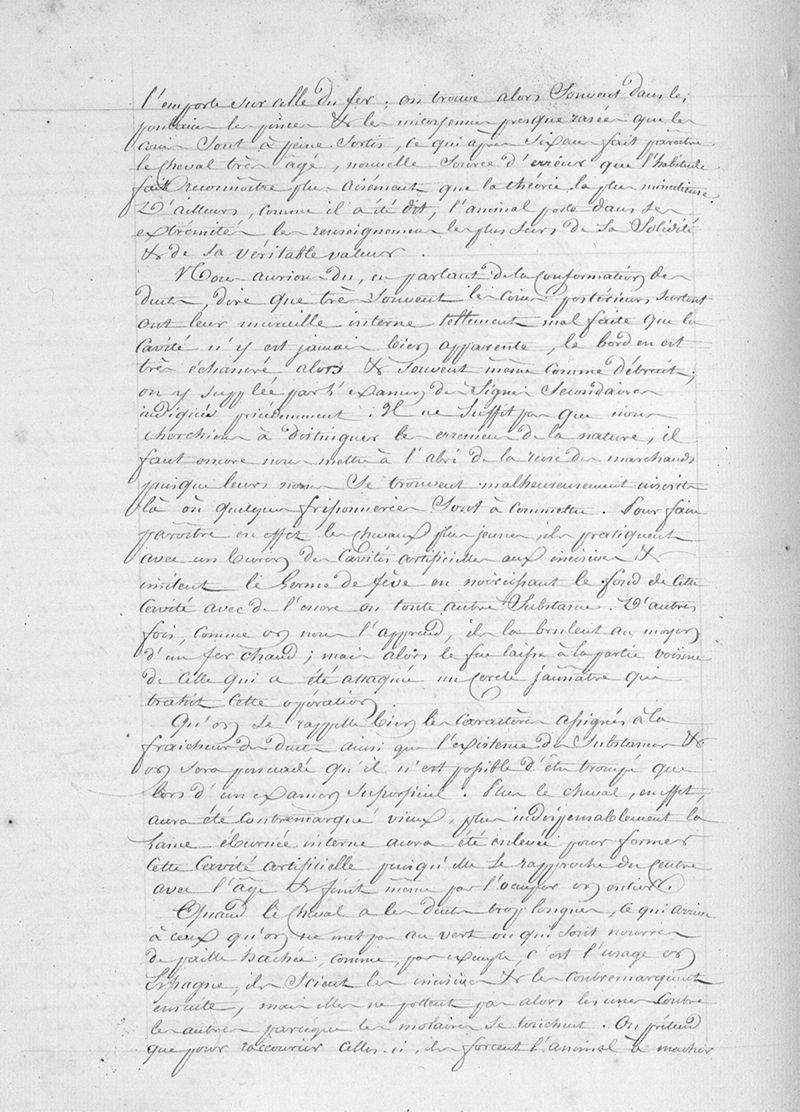 l'emporte sur celle du fer ; on trouve alors souvent dans les
poulains les pinces & les mitoyennes presque rasées que les
coins sont à peine sortis, ce qui après six ans fait parâitre
le cheval très âgé, nouvelle source d'erreur que l'habitude
fait reconnoître plus aisément que la théorie la plus minutieuse.
D'ailleurs, comme il a été dit, l'animal porte dans ses
extrémités les renseignemens les plus sûrs de sa solidité
& de sa véritable valeur.
Nous aurions du, en parlant de la conformation des
dents, dire que très souvent les coins postérieurs surtout
ont leur muraille interne tellement mal faite que la
cavité n'y est jamais bien apparente, le bord en est
très échancré alors & souvent même comme détruit ;
on y supplée par l'examen des signes secondaires
indiqués précédemment. Il ne suffit pas que nous
cherchions à distinguer les erreurs de la nature, il
faut encore nous mettre à l'abri de la ruse des marchands
puisque leurs noms se trouvent malheureusement inscrits
là où quelques friponneries sont à commettre. Pour faire
parâitre en effet les chevaux plus jeunes, ils pratiquent
avec un burin des cavités artificielles aux incisives &
imitent le germe de fève en noircissant le fond de cette
cavité avec de l'encre ou toute autre substance. D'autres
fois, comme on nous l'apprend, ils la brulent au moyen
d'un fer chaud ; mais alors le feu laisse à la partie voisine
de celle qui a été attaquée un cercle jaunâtre qui
trahit cette opération.
Qu'on se rappelle bien les caractères assignés à la
fraicheur des dents ainsi que l'existence des substances &
on sera persuadé qu'il n'est possible d'être trompé que
lors d'un examen superficiel. Plus le cheval, en effet,
aura été contremarqué vieux, plus indispensablement la
lame éburnée interne aura été enlevée pour former
cette cavité artificielle puisqu'elle se rapproche du centre
avec l'âge & finit même par l'occuper en entier.
Quand le cheval a les dents trop longues, ce qui arrive
à ceux qu'on ne met pas au vert ou qui sont nourris
de paille hachée, comme, par exemple, c'est l'usage en
Espagne, ils scient les incisives & les contremarquent
ensuite, mais elles ne portent pas alors les unes contre
les autres parceque les molaires se touchent. On prétend
que pour raccourcir celles-ci, ils forcent l'animal à macher